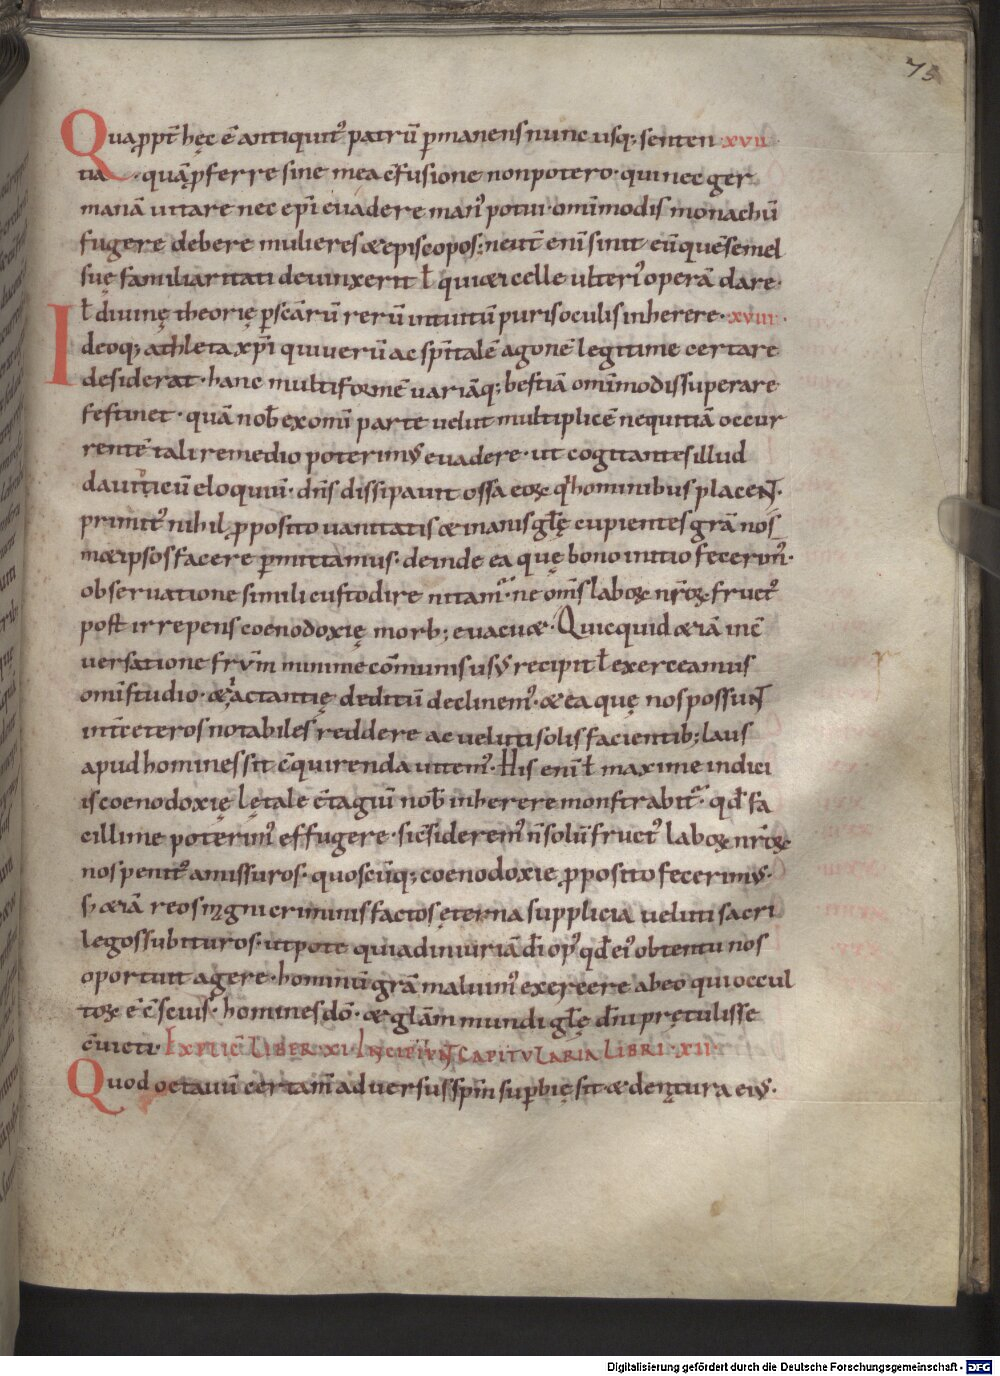 75
Quapropt̄ hęc ē antiquit᷒ patrū ꝑmanens nunc usq; senten xvii
tia · quā ꝓferre sine mea c̄fusione non potero · qui nec ger
manā uitare nec ep̄i euadere man᷒ potui · omīmodis monachū
fugere debere mulieres & episcopos; neut̄ enī sinit eū quē semel
suę familiaritati deuinxerit ł quiæi celle ulteri᷒ operā dare·
ł diuinę theorię ꝑ sc̄arū rerū intuitū puris oculis inherere · xviii ·
Ideoq; athleta xp̄i qui uerū ac sp̄italē agonē legitime certare
desiderat · hanc multiformē uariāq; bestiā omīmodis superare
festinet · quā nob̄ ex omī parte uelut multiplicē nequitiā occur
rentē tali remedio poterim᷒ euadere · ut cogitantes illud
dauiticū eloquiū · dn̄s dissipauit ossa eoꝝ qⁱ hominibus placeNT·
primit᷒ nihil ꝓposito uanitatis & inanis gl̄ę cupientes grā nos
mæipsos facere ꝑmittamus · deinde ea quę bono initio fecerim᷒·
obseruatione simili custodire nitam᷒ · ne om̄s laboꝝ nr̄oꝝ fruct᷒
post irrepens coenodoxię morb; euacuæ · Quicquid &iā in c̄
uersatione frūm minime cōmunis us᷒ recipit ł exerceamus
omī studio · & iactantię deditū declinem᷒ · & ea quę nos possuNT
int̄ ceteros notabiles reddere ac ueluti solis facientib; laus
apud homines sit c̄quirenda uitem᷒ · His enī ł maxime indici
is coenodoxię lętale c̄tagiū nob̄ inherere monstrabit᷒ · qđ fa
cillime poterim᷒ effugere · si c̄siderem᷒ n̄ solū fruct᷒ laboꝝ nr̄oꝝ
nos penit᷒ amissuros · quoscūq; coenodoxie ꝓposito fecerim᷒·
s; &iā reos magni criminis factos ęterna supplicia ueluti sacri
legos subituros · utpote qui ad iniuriā dī op᷒ qđ ei᷒ obtentu nos
oportuit agere · hominū grā maluim᷒ exercere ab eo qui occul
toꝝ ē c̄scius · homines dō · & glām mundi gl̄ę diuī prętulisse
c̄uicti · Explic̄ Liber · xi · IncipiuNT Capitularia Libri · xii ·
Quod octauū certam̄ aduersus sp̄m suꝑbię sit & de natura ei᷒·
Digitalisierung gefördert durch die Deutsche Forschungsgemeinschaft · DFG